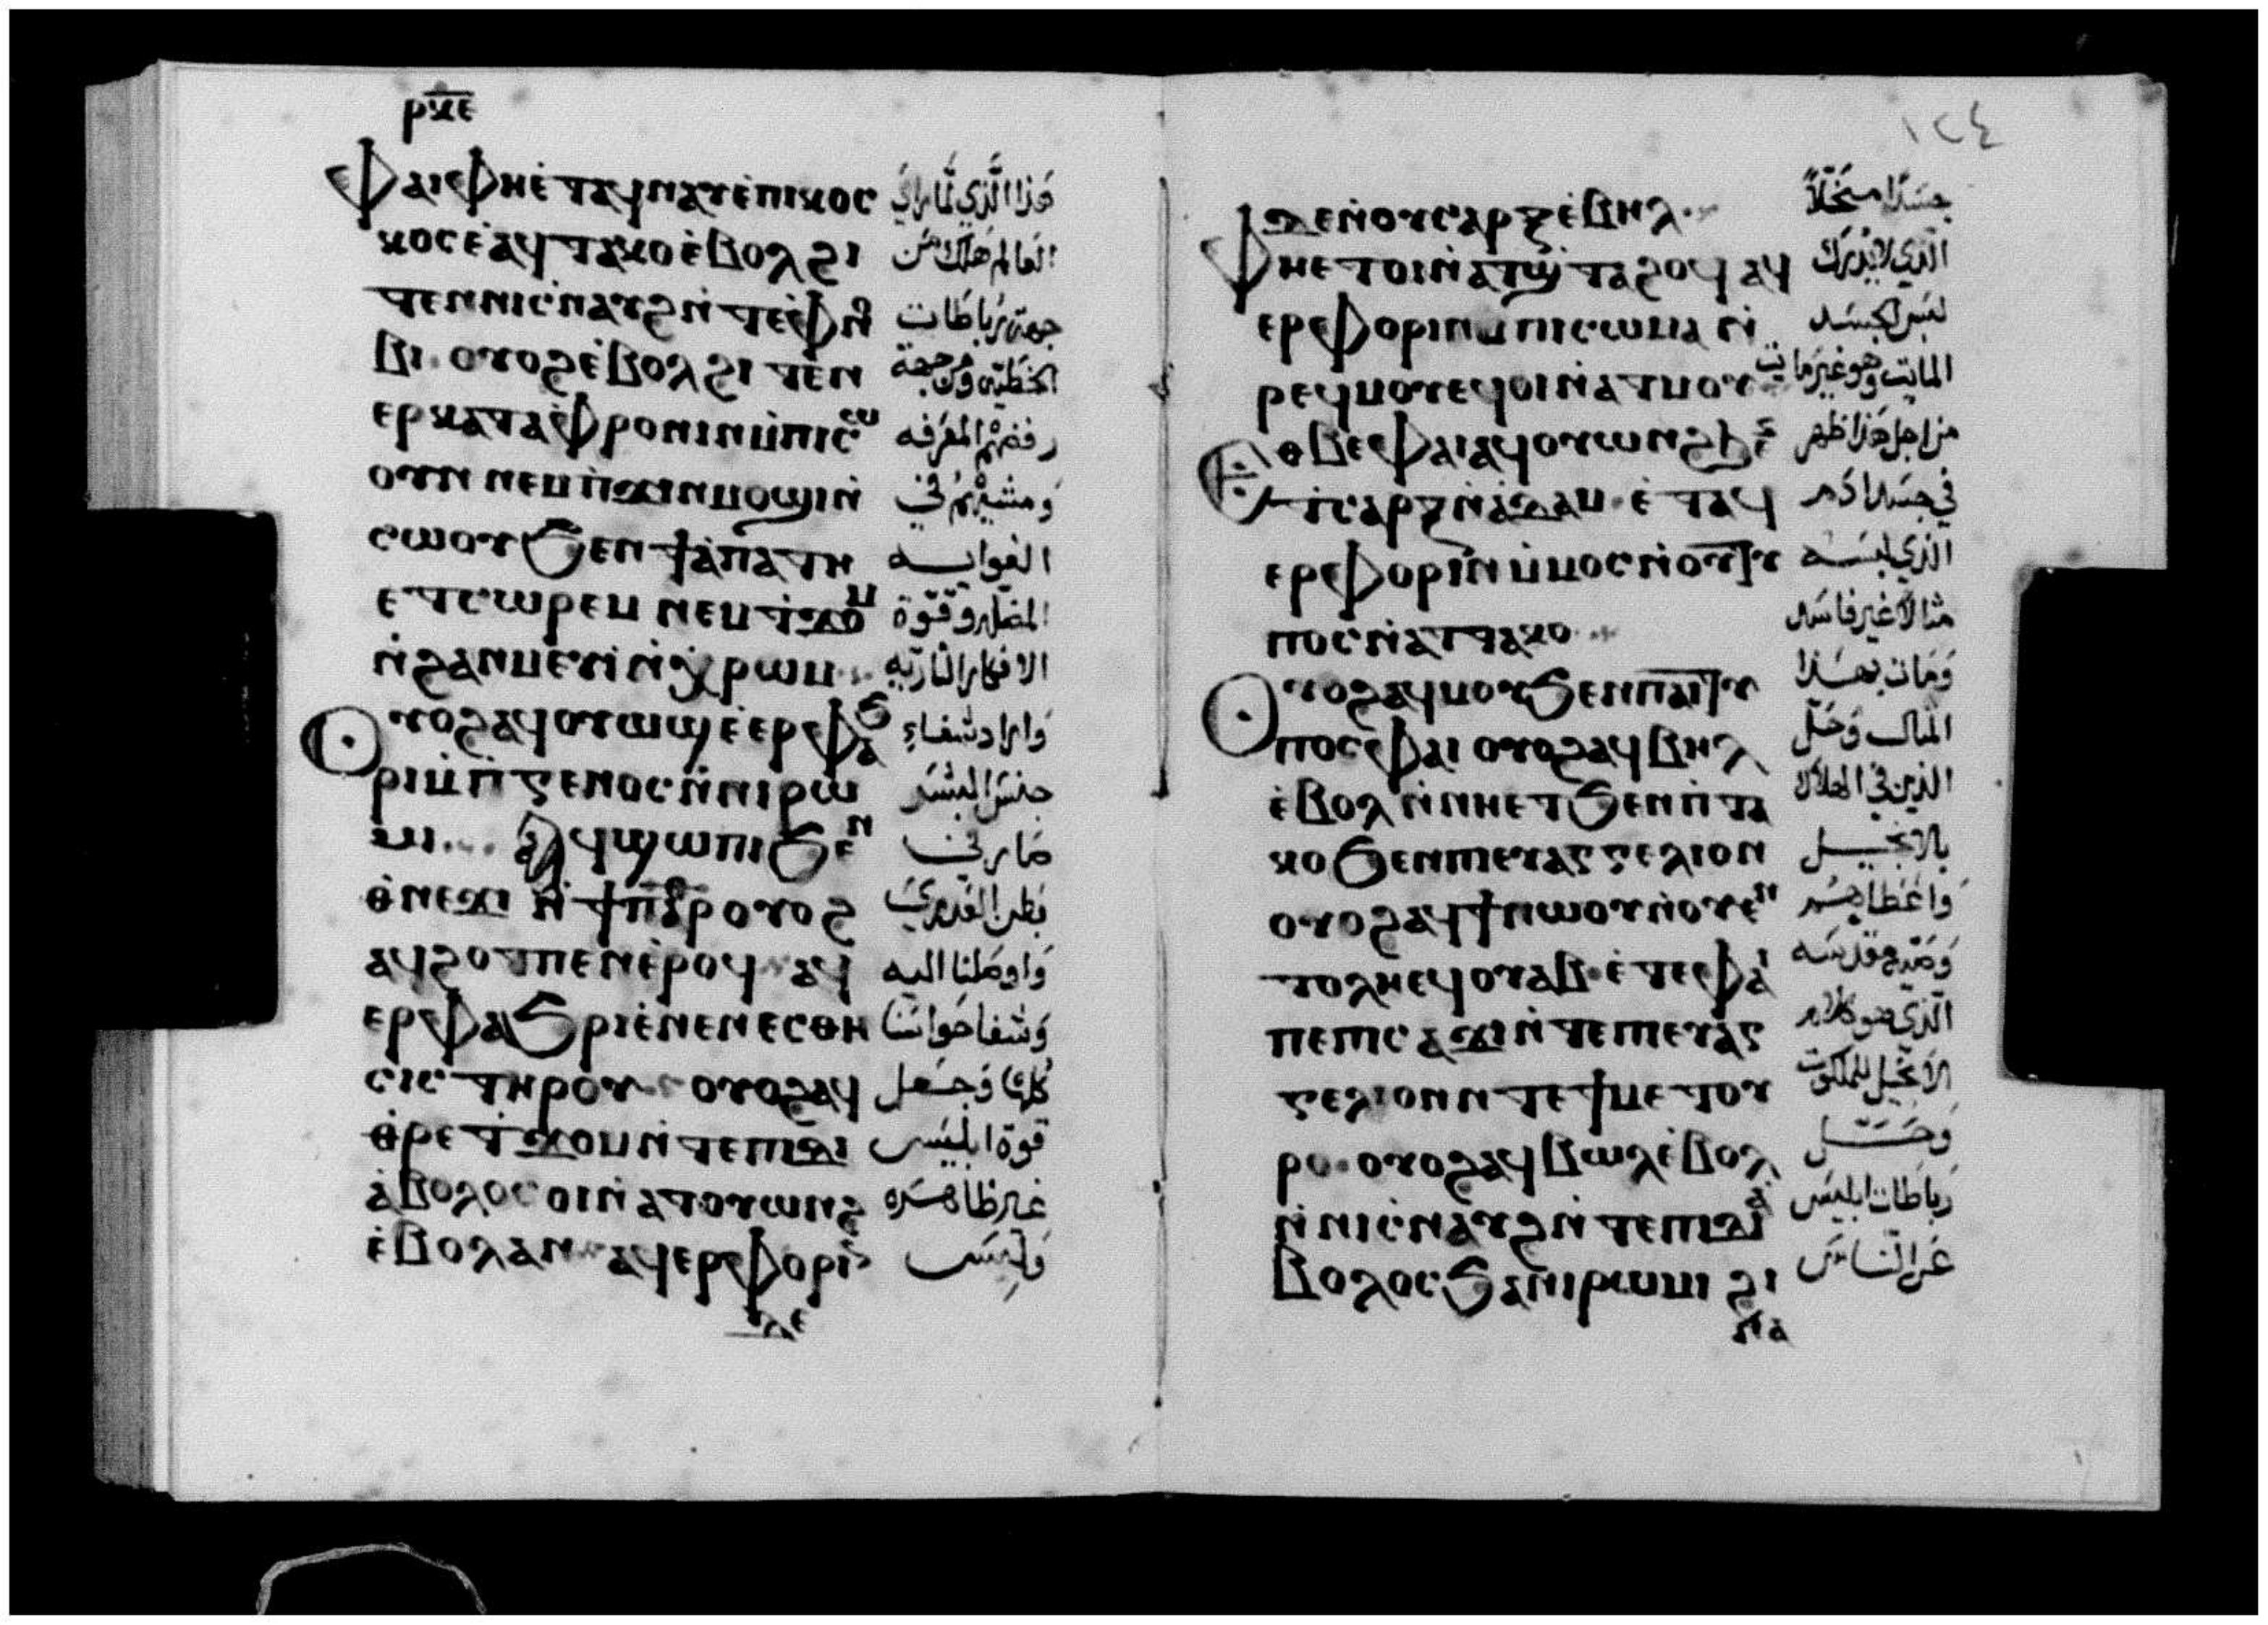 ⲣⲕⲉ
ⲫⲁⲓ ⲫⲏ ⲉ̀ⲧⲁϥⲛⲁⲩ ⲉ̀ⲡⲓⲕⲟⲥ هذا الذي لما راي
ⲕⲟⲥ ⲉ̀ⲁϥⲧⲁⲕⲟ ⲉ̀ⲃⲟⲗ ϩⲓ العالم هلك من
ⲧⲉⲛ ⲛⲓⲥ̀ⲛⲁⲩϩ ⲛ̀ⲧⲉ ⲫ̀ⲛⲟ جهة رباطات
ⲃⲓ ⲟⲩⲟϩ ⲉ̀ⲃⲟⲗ ϩⲓⲧⲉⲛ الخطية ومن جهة
ⲉⲣⲕⲁⲧⲁⲫ̀ⲣⲟⲛⲓⲛ ⲙ̀ⲡⲓⲥⲱ رفضهم المعرفه
ⲟⲩⲛ ⲛⲉⲙ ⲡ̀ϫⲓⲛⲙⲟϣⲓ ⲛ̀ ومشيهم في
ⲥⲱⲟⲩ ϧⲉⲛ ϯⲁ̀ⲡⲁⲧⲏ الغوايه
ⲉⲧⲥⲱⲣⲉⲙ ⲛⲉⲙ ⲧ̀ϫⲟⲙ المضله وقوة
ⲛ̀ϩⲁⲛⲙⲉⲩⲓ̀ ⲛ̀ⲭ̀ⲣⲱⲙ الافكار الناريه
ⲟⲩⲟϩ ⲁϥⲟⲩⲱϣ ⲉ̀ⲉⲣⲫⲁϧ وارادشفاء
ⲣⲓ ⲙ̀ⲡ̀ⲅⲉⲛⲟⲥ ⲛ̀ⲛⲓⲣⲱ جنس البشر
ⲙⲓ ⲁϥϣⲱⲡⲓ ϧⲉⲛ صار في
ⲑ̀ⲛⲉϫⲓ ⲛ̀ϯⲡⲁⲣ ⲟⲩⲟϩ بطن العذري
ⲁϥϩⲟⲧⲡⲉⲛ ⲉ̀ⲣⲟϥ ⲁϥ واوصلنا اليه
ⲉⲣⲫⲁϧⲣⲓ ⲉ̀ⲛⲉⲛⲉⲥⲑⲏ وشفا حواسنا
ⲥⲓⲥ ⲧⲏⲣⲟⲩ ⲟⲩⲟϩ ⲁϥ كلها وجعل
ⲑ̀ⲣⲉ ⲧ̀ϫⲟⲙ ⲛ̀ⲧⲉ ⲡⲓⲇⲓ قوة ابليس
ⲁ̀ⲃⲟⲗⲟⲥ ⲟⲓ ⲛ̀ⲁⲧⲟⲩⲱⲛϩ غير ظاهره
ⲉ̀ⲃⲟⲗ ⲁⲛ ⲁϥⲉⲣⲫⲟⲣⲓⲛ ولبس
ϧⲉ
١٢٤
ϧⲉⲛ ⲟⲩⲥⲁⲣⲝ ⲉ̀ⲃⲏⲗ جسدا
ⲫⲏ ⲉⲧⲟⲓ ⲛ̀ⲁⲧϣ̀ⲧⲁϩⲟϥ ⲁϥ الذي لا يدرك
ⲉⲣⲫⲟⲣⲓⲛ ⲙ̀ⲡⲓⲥⲱⲙⲁ ⲛ̀ لبس الجسد
ⲣⲉϥⲙⲟⲩ ⲉϥⲟⲓ ⲛ̀ⲁⲧⲙⲟⲩ المايت وهو غير مايت
ⲉⲑⲃⲉ ⲫⲁⲓ ⲁϥⲟⲩⲱⲛϩ ϧⲉⲛ من اجل هذا ظهر
ⲧ̀ⲥⲁⲣⲝ ⲛ̀ⲁ̀ⲇⲁⲙ ⲉ̀ⲧⲁϥ في جسد ادم
ⲉⲣⲫⲟⲣⲓⲛ ⲙ̀ⲙⲟⲥ ⲛ̀ⲟⲩⲧⲩ الذي لبسه
ⲡⲟⲥ ⲛ̀ⲁⲧⲧⲁⲕⲟ مثالا غير فاسد
ⲟⲩⲟϩ ⲁϥⲙⲟⲩ ϧⲉⲛ ⲡⲁⲓⲧⲩ ومات بهذا
ⲡⲟⲥ ⲫⲁⲓ ⲟⲩⲟϩ ⲁϥⲃⲏⲗ المثال وحل
ⲉ̀ⲃⲟⲗ ⲛ̀ⲛⲏ ⲉⲧϧⲉⲛ ⲡ̀ⲧⲁ الذين في الهلاك
ⲕⲟ ϧⲉⲛ ⲡⲓⲉⲩⲁⲅⲅⲉⲗⲓⲟⲛ بالانجيل
ⲟⲩⲟϩ ⲁϥϯ ⲛⲱⲟⲩ ⲛ̀ⲟⲩⲉⲛ واعطاهم
ⲧⲟⲗⲏ ⲉϥⲟⲩⲁⲃ ⲉ̀ⲧⲉ ⲫⲁⲓ
ⲡⲉ ⲡⲓⲥⲁϫⲓ ⲛ̀ⲧⲉ ⲡⲓⲉⲩⲁⲅ الذي هو كلام
ⲅⲉⲗⲓⲟⲛ ⲛⲧⲉ ϯⲙⲉⲧⲟⲩ الانجيل للملكوت
ⲣⲟ ⲟⲩⲟϩ ⲁϥⲃⲱⲗ ⲉ̀ⲃⲟⲗ وحل
ⲛ̀ⲛⲓⲥ̀ⲛⲁⲩϩ ⲛ̀ⲧⲉ ⲡⲓⲇⲓⲁ̀ رباطات ابليس
ⲃⲟⲗⲟⲥ ϧⲁ ⲛⲓⲣⲱⲙⲓ ϩⲓ عن الناس